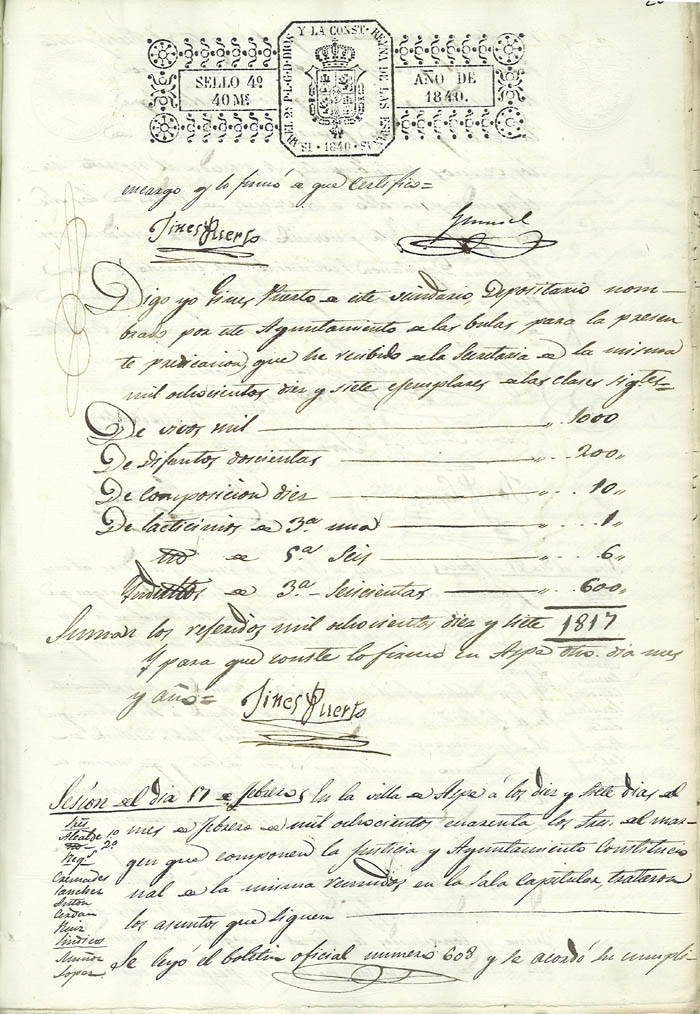 SELLO 4º
40 Mˢ
ISABEL 2ª P.L.G.D.DIOS Y LA CONST. REYNA DE LAS ESPAÑAS
·1840·
AÑO DE
1840.
encargo y lo firmó de que Certifico=
Jines Puerto
Digo yo Gines Puerto de este vecindario, Depositario nom-
brado por este Ayuntamiento de las bulas para la presen
te predicacion, que he recibido de la Secretaria de la misma
mil ochocientos diez y siete ejemplares de las clases sigtes=
De vivos mil 1000
De difuntos doscientas 200
De composicion diez 10
De lacticinios de 3.ª una 1
de 5.ª Seis 6
Yndultos de 3.ª Seiscientas 600
Suman los referidos mil ochocientos diez y siete 1817
Y para que conste lo firmo en Aspe dho. dia mes
y año=
Jines Puerto
Sesion del dia 17 de febrero, En la villa de Aspe á los diez y siete dias del
mes de febrero de mil ochocientos cuarenta los Sres. del mar-
gen que componen la Justicia y Ayuntamiento Constitucio
nal de la misma reunidos en la Sala Capitular, trataron
los asuntos que siguen
Se leyó el boletin oficial numero 608 y se acordó su cumpli-
Sres
Alcalde 1º
2º
Regs
Cremades
Sanchez
Anton
Cerdan
Ruiz
Sindicos
Muñoz
Lopez